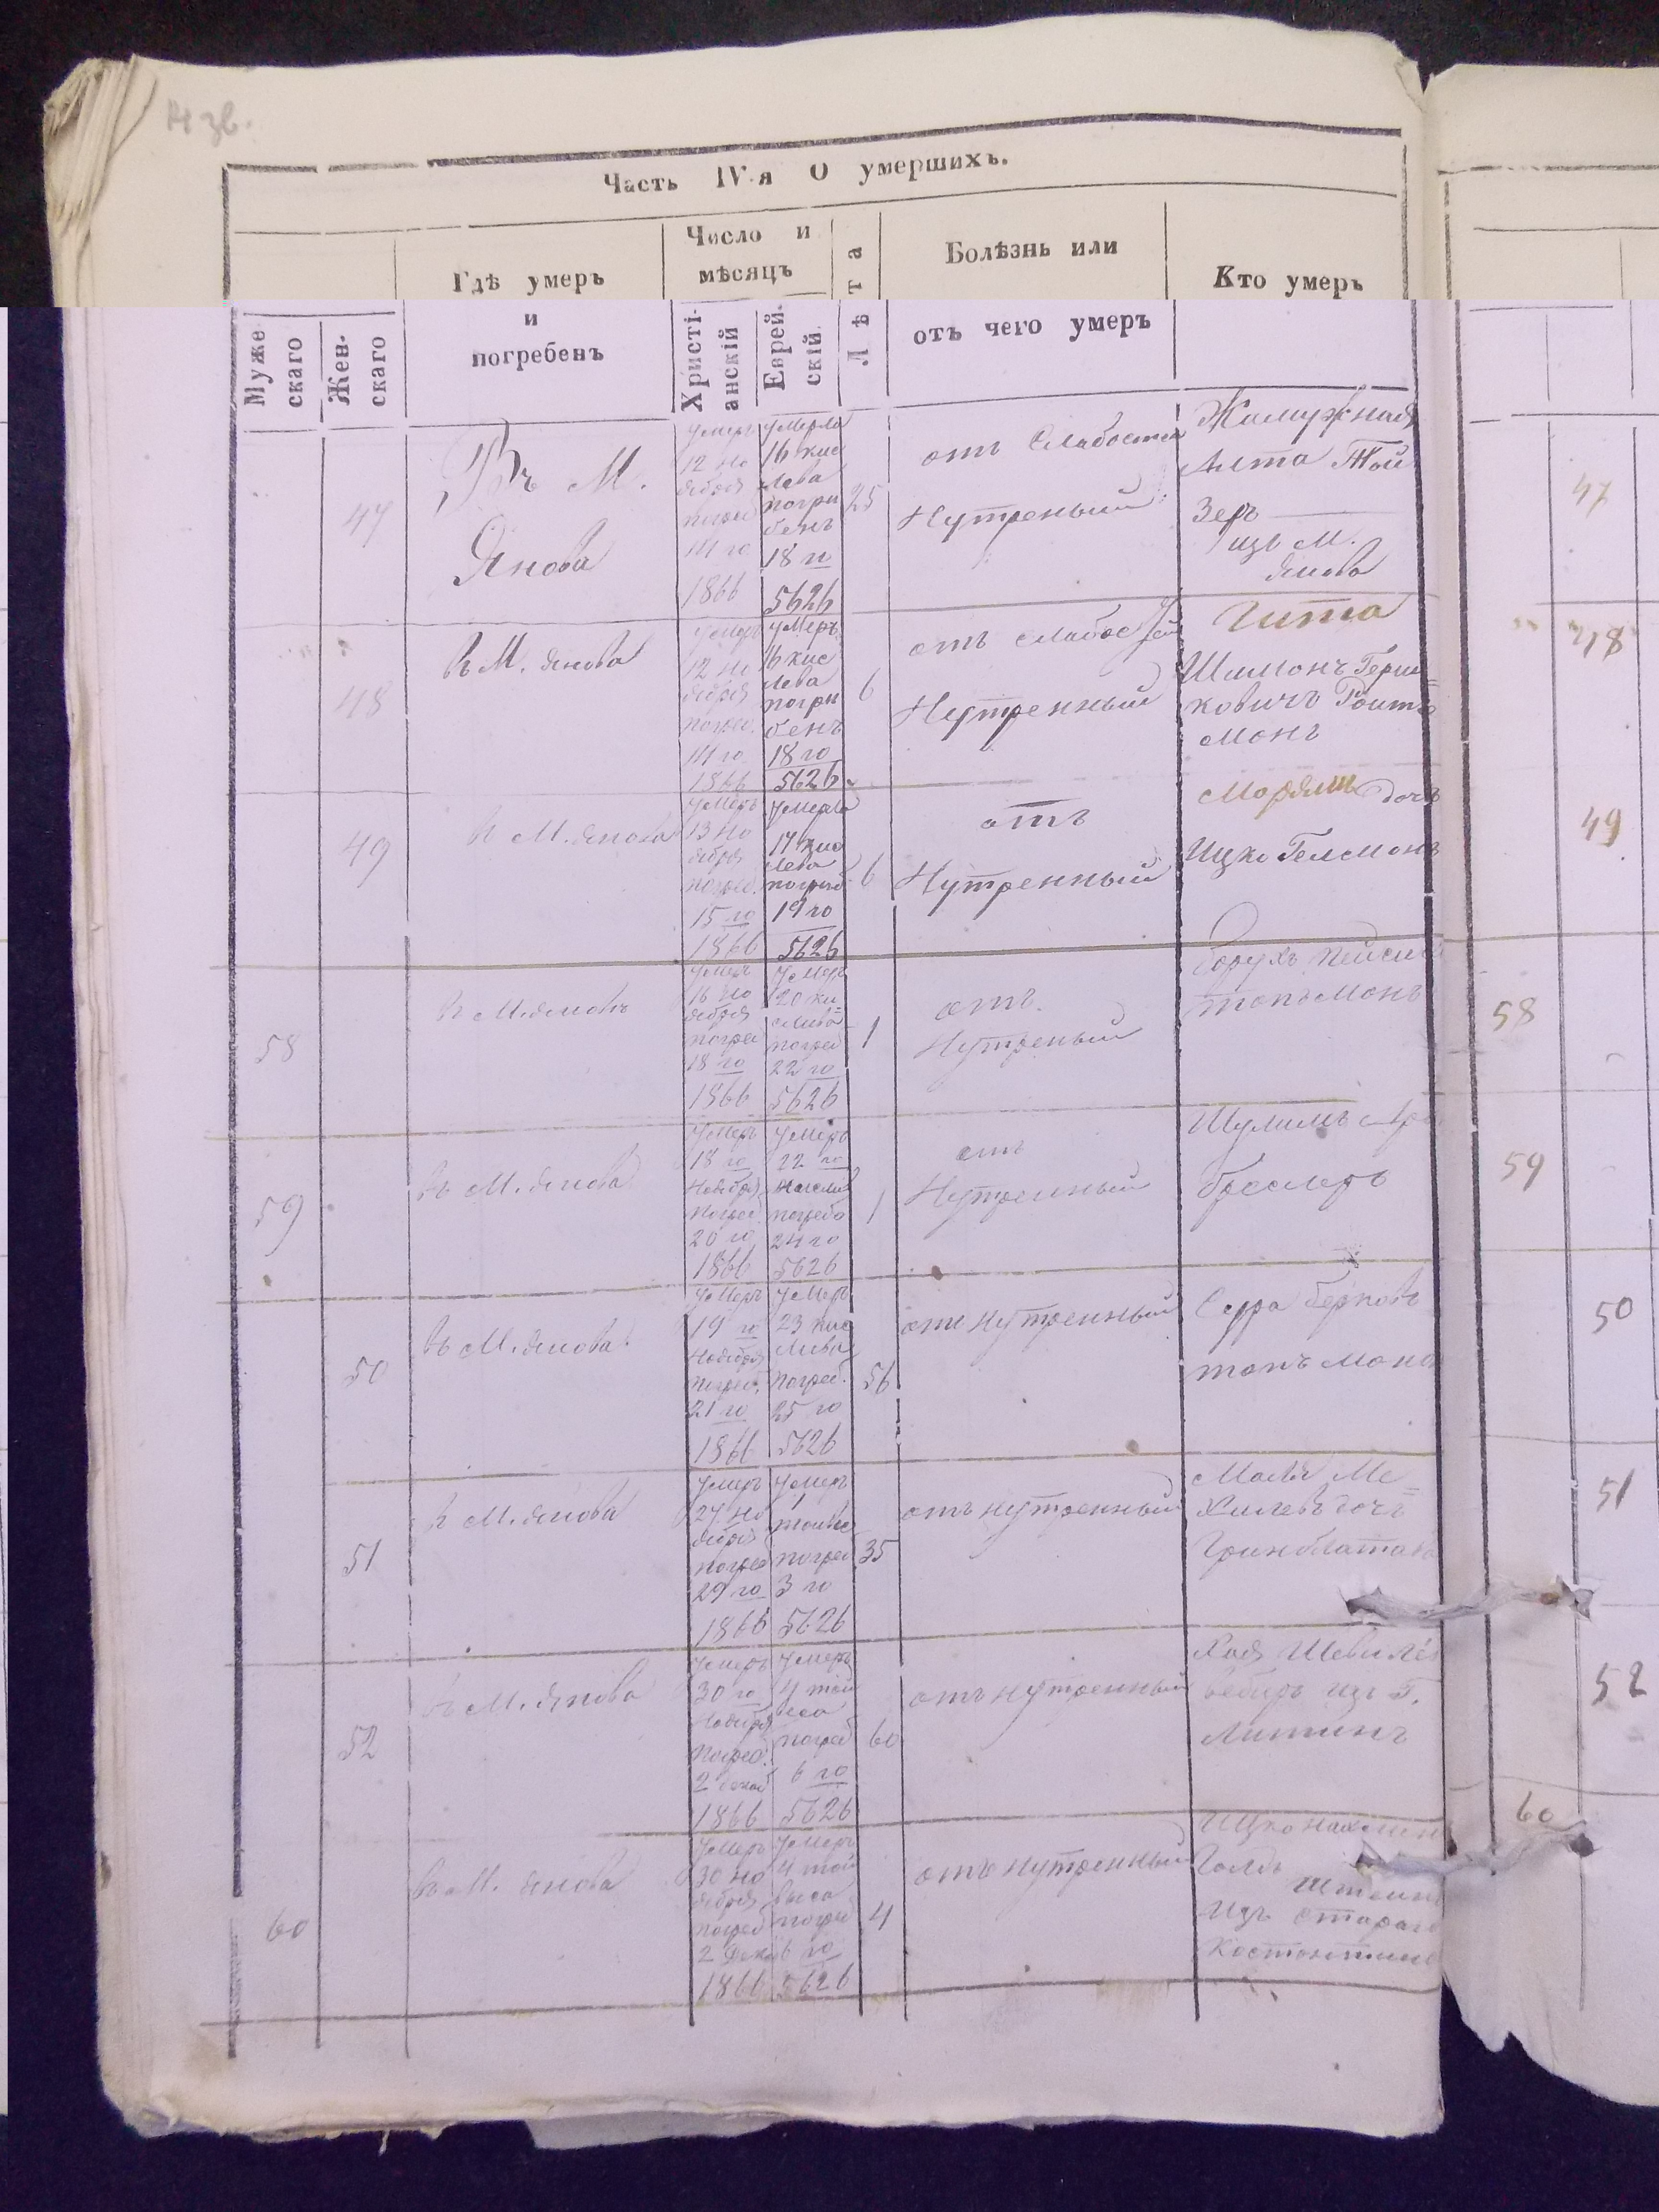 Часть IV-я О умершихъ.
Мужескаго
Женскаго
Гдѣ умеръ
и
погребенъ
Число и
мѣсяцъ
Христіанскій
Еврейскій
Лѣта
Болѣзнь или
отъ чего умеръ
Кто умеръ
47
Въ М.
Янова
умеръ
12 но
ября
погреб
14 го
1866
умерла
16 кис
лева
погри
бенъ
18 го
5626
25
отъ Слабостей
Нутреный
изъ М.
Янова
47
48
въ М. Янова
умеръ
12 но
ября
погреб.
14 го
1866
умеръ
16 кис
лева
погри
бенъ
18 го
5626
6
отъ слабостей
Нутренный
Гита
Шимонъ Герш
ковичъ Роит
монъ
48
49
в М. Янова
умеръ
13 но
ября
погреб.
15 го
1866
умерла
17 кис
лева
погреб
19 го
5626
6
отъ
Нутренный
дочь
Ицко Гелмонъ
49
58
умеръ
16 но
ября
погреб
18 го
1866
умер
20 ки
слива
погреб
22 го
5626
1
отъ
Нутреный
Борухъ
58
59
въ М. Янова
умеръ
18 го
Ноября
погреб.
20 го
1866
умеръ
22 го
погреб
24 го
5626
1
отъ
Нутренный
Шулимъ
Бреслеръ
59
50
въ М. Янова.
умеръ
19 го
Ноября
погреб.
21 го
1866
умеръ
23 кис
лива
погреб.
25 го
5626
56
отъ нутренный
Сура Берковъ
50
51
в М. Янова
умеръ
27 но
ября
погреб
29 го
1866
умеръ
1
погреб
3 го
5626
35
отъ нутренный
Гринблатова
51
52
въ М. Янова
умеръ
30 го
Ноября
погреб.
2 декаб
1866
умеръ
4 той
веса
погреб
6 го
5626
60
отъ нутренный
Хая
изъ Г.
Литинъ
52
60
въ М. Янова
умеръ
30 но
ября
погреб
2 Дека
1866
умеръ
4 той
веса
погреб
6 го
5626
4
отъ нутренный
Голд
Штеин
Изъ Стараго
Костонтино
60